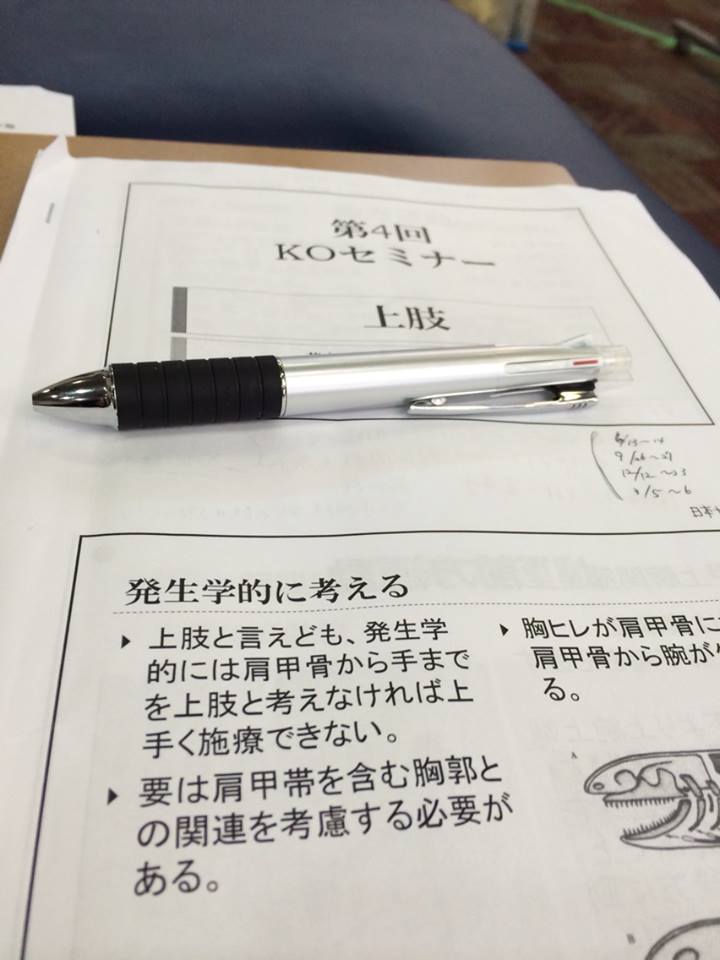 第4回
KOセミナー
上肢
9/26~27
3/5~6
日本
発生学的に考える
上肢と言えども、発生学
的には肩甲骨から手まで
を上肢と考えなければ上
手く施療できない。
要は肩甲帯を含む胸郭と
の関連を考慮する必要が
ある。
胸ヒレが肩甲骨に
肩甲骨から腕が
る。
A
B